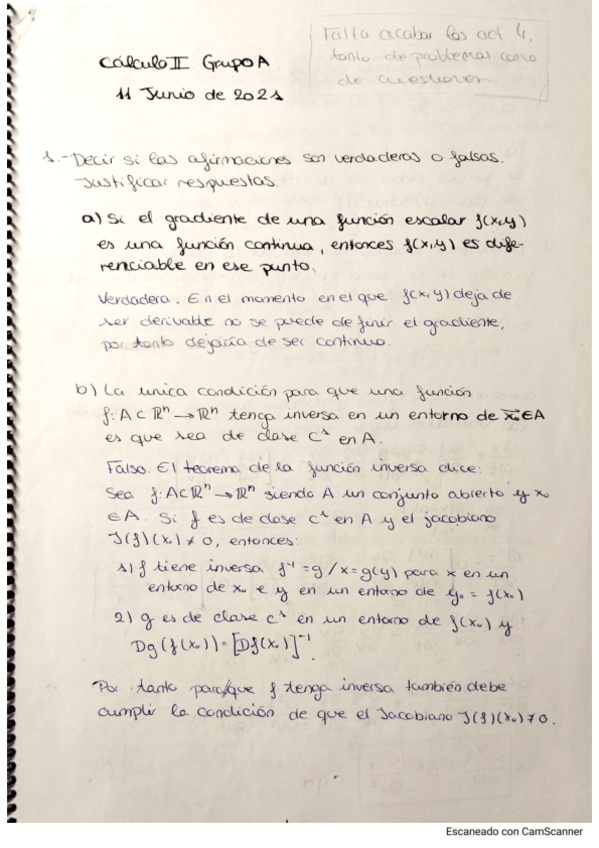 Falta acabar las act. 4,
tanto de problemas como
de cuestiones.
Cálculo II Grupo A
11 Junio de 2021
1.- Decir si las afirmaciones son verdaderas o falsas.
Justificar respuestas.
a) Si el gradiente de una función escalar f(x,y)
es una función continua, entonces f(x,y) es dife-
renciable en ese punto.
Verdadera. En el momento en el que f(x,y) deja de
ser derivable no se puede definir el gradiente,
por tanto dejaría de ser continuo.
b) La unica condición para que una función
f: A ⊂ ℝⁿ → ℝⁿ tenga inversa en un entorno de x⃗₀ ∈ A
es que sea de clase C¹ en A.
Falso. El teorema de la función inversa dice:
Sea f: A ⊂ ℝⁿ → ℝⁿ siendo A un conjunto abierto y x₀
∈ A. Si f es de clase C¹ en A y el jacobiano
J(f)(x₀) ≠ 0, entonces:
1) f tiene inversa f⁻¹ = g / x = g(y) para x en un
entorno de x₀ e y en un entorno de y₀ = f(x₀)
2) g es de clase C¹ en un entorno de f(x₀) y
Dg(f(x₀)) = [Df(x₀)]⁻¹
Por tanto para que f tenga inversa también debe
cumplir la condición de que el Jacobiano J(f)(x₀) ≠ 0.
Escaneado con CamScanner